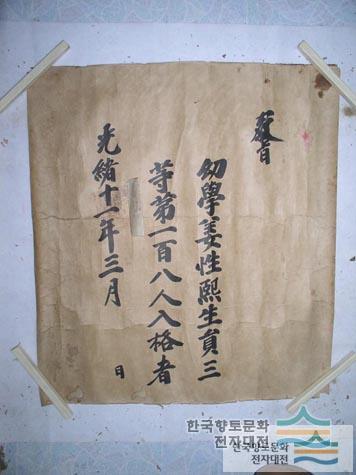 敎旨
幼學姜性熙生員三
等第一百八人入格者
光緖十一年三月
日
한국향토문화
전자대전
한국향토문화
전자대전